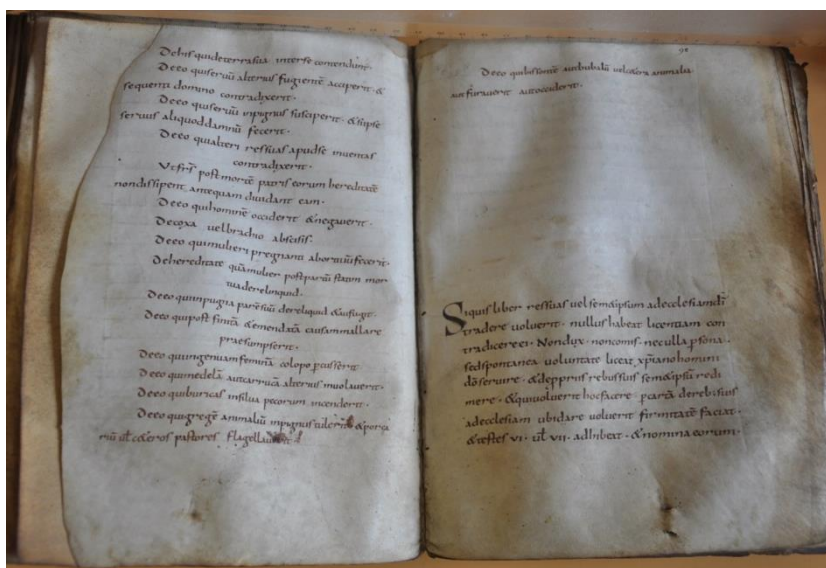 Dehis quideterrasua interse contendunt·
Deeo quiseruū alterius fugientē acciperit· &
sequenti domino contradixerit·
Deeo quiseruū inpignus susciperit· &ipse
seruus aliquoddamnū fecerit·
Deeo qualteri ressuas apudse inuentas
contradixerit·
Utfrs̄ postmortē patris eorum hereditatē
nondissipent, antequam diuidant eam·
Deeo quihominē occiderit &negauerit·
Decoxa uelbrachio abscisis·
Deeo quimulieri pregnanti abortiuū fecerit·
Dehereditate quāmulier postpartū statim mor
tuaderelinquid·
Deeo quiinpugna paresuū dereliquid &aufugit·
Deeo quipost finitā &emendatā causam mallare
praesumpserit·
Deeo quiingenuam feminā colopo pcusserit·
Deeo quiinedelā autcarrucā alterius inuolauerit·
Deeo quiburicas insilua pecorum incenderit·
Deeo quigregē animaliū inpignus tulerit &porca
riū ul̄ c&eros pastores flagellauerit
90
Deeo quibissontē autbubalū uelc&era animalia
autfurauerit autocciderit·
Siquis liber ressuas uel sem&ipsum adecclesiamdī
tradere uoluerit· nullus habeat licentiam con
tradicereei· Nondux· noncomis· neculla psona·
sedspontanea uoluntate liceat xp̄iano homini
dō seruire· &depprus rebussuis sem&ipsū redi
mere· &quiuoluerit hocfacere pcartā derebussuis
adecclesiam ubidare uoluerit firmitatē faciat·
&testes vi· ul̄ vii· adhibeat· &nomina eorum·